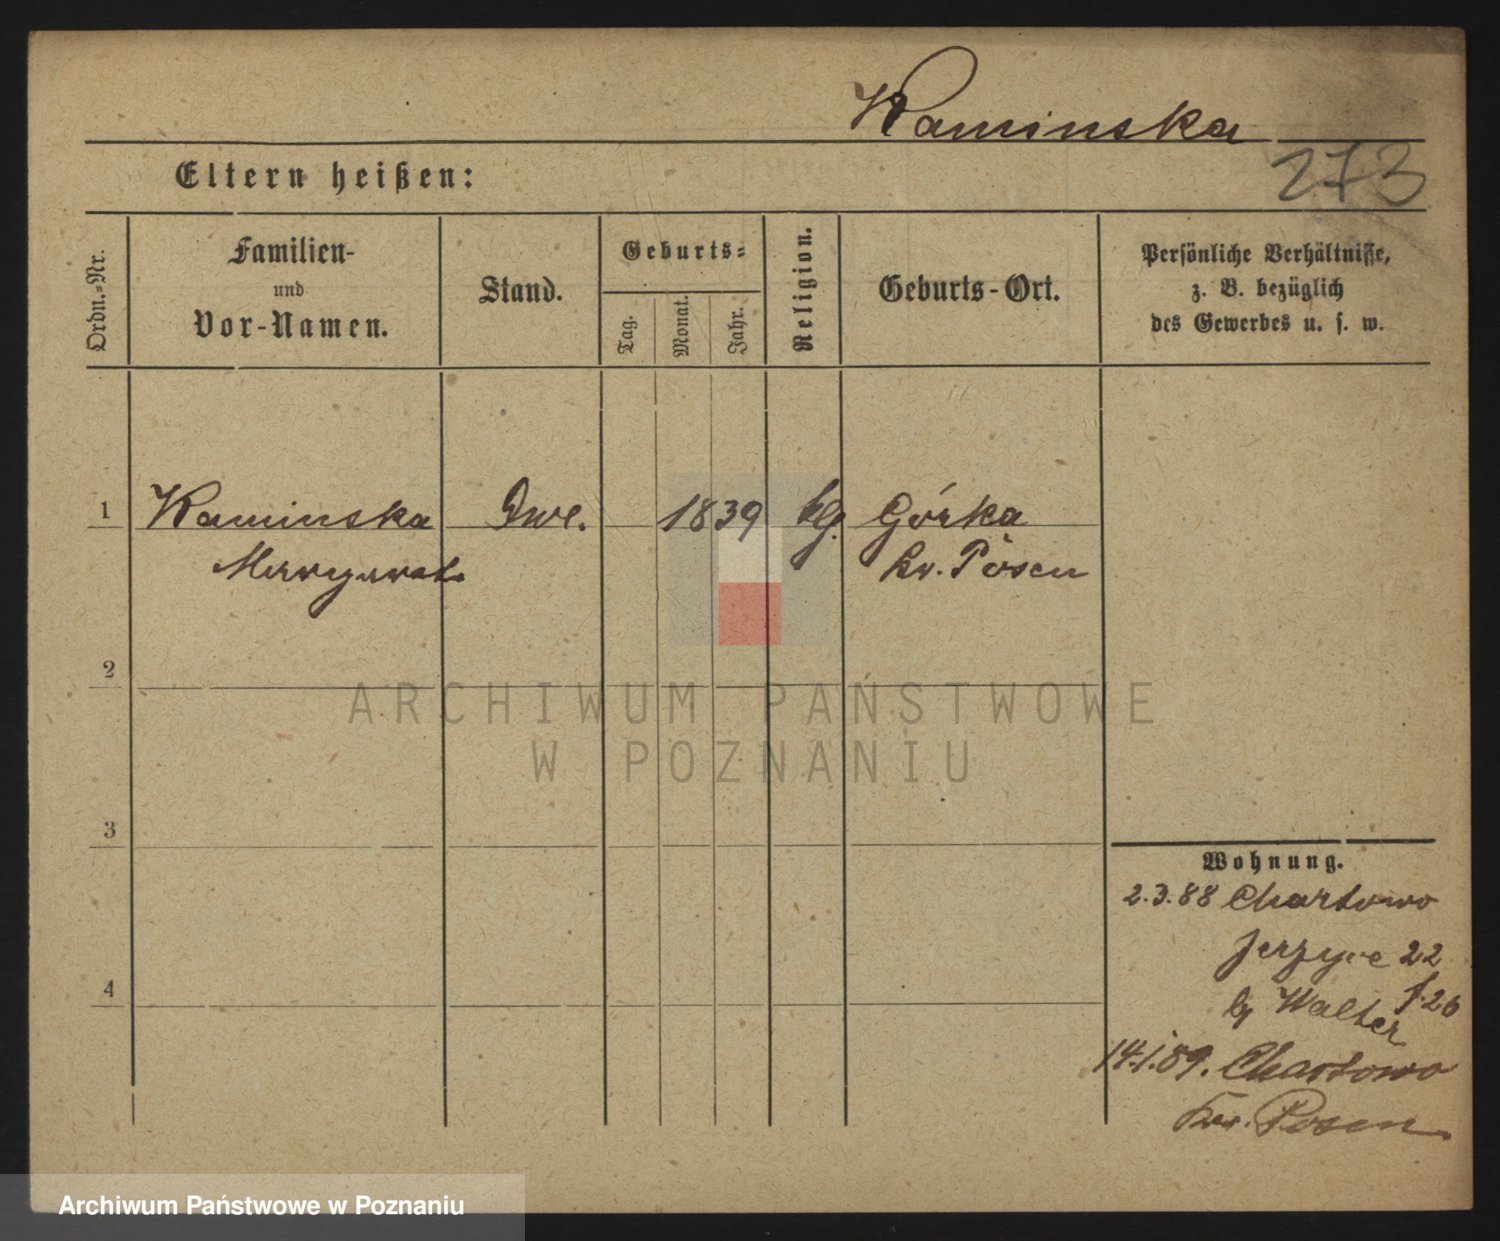 Kaminska
273
Eltern heißen:
Ordn.-Nr.
Familien-
und
Vor-Namen.
Stand.
Geburts-
Tag.
Monat.
Jahr.
Religion.
Geburts-Ort.
Persönliche Verhältnisse,
z. B. bezüglich
des Gewerbes u. s. w.
1 Kaminska Dwe. 1839 kg. Górka
Kr. Posen
2
ARCHIWUM PAŃSTWOWE
W POZNANIU
3
4
Wohnung.
2.3.88 Chartowo
Jerzyce 22
by Walter
14.1.89. Chartowo
Kr. Posen
Archiwum Państwowe w Poznaniu